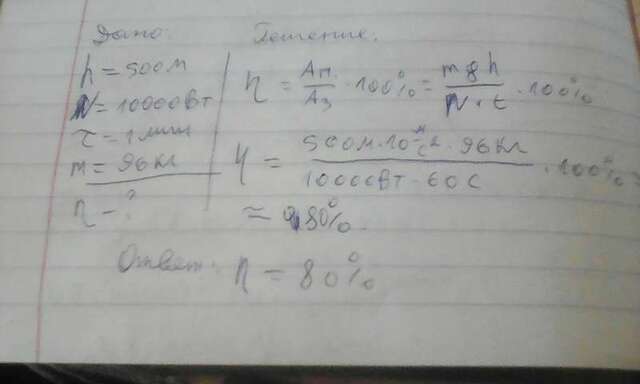 Дано:
h = 500м
N = 10000Вт
τ = 1 мин
m = 96 кг
η - ?
Решение.
η = Ап./Аз · 100% = mgh/N·t · 100%
η = 500м·10 м/с²·96кг/10000Вт·60с · 100%
≈ 80%.
Ответ: η = 80%